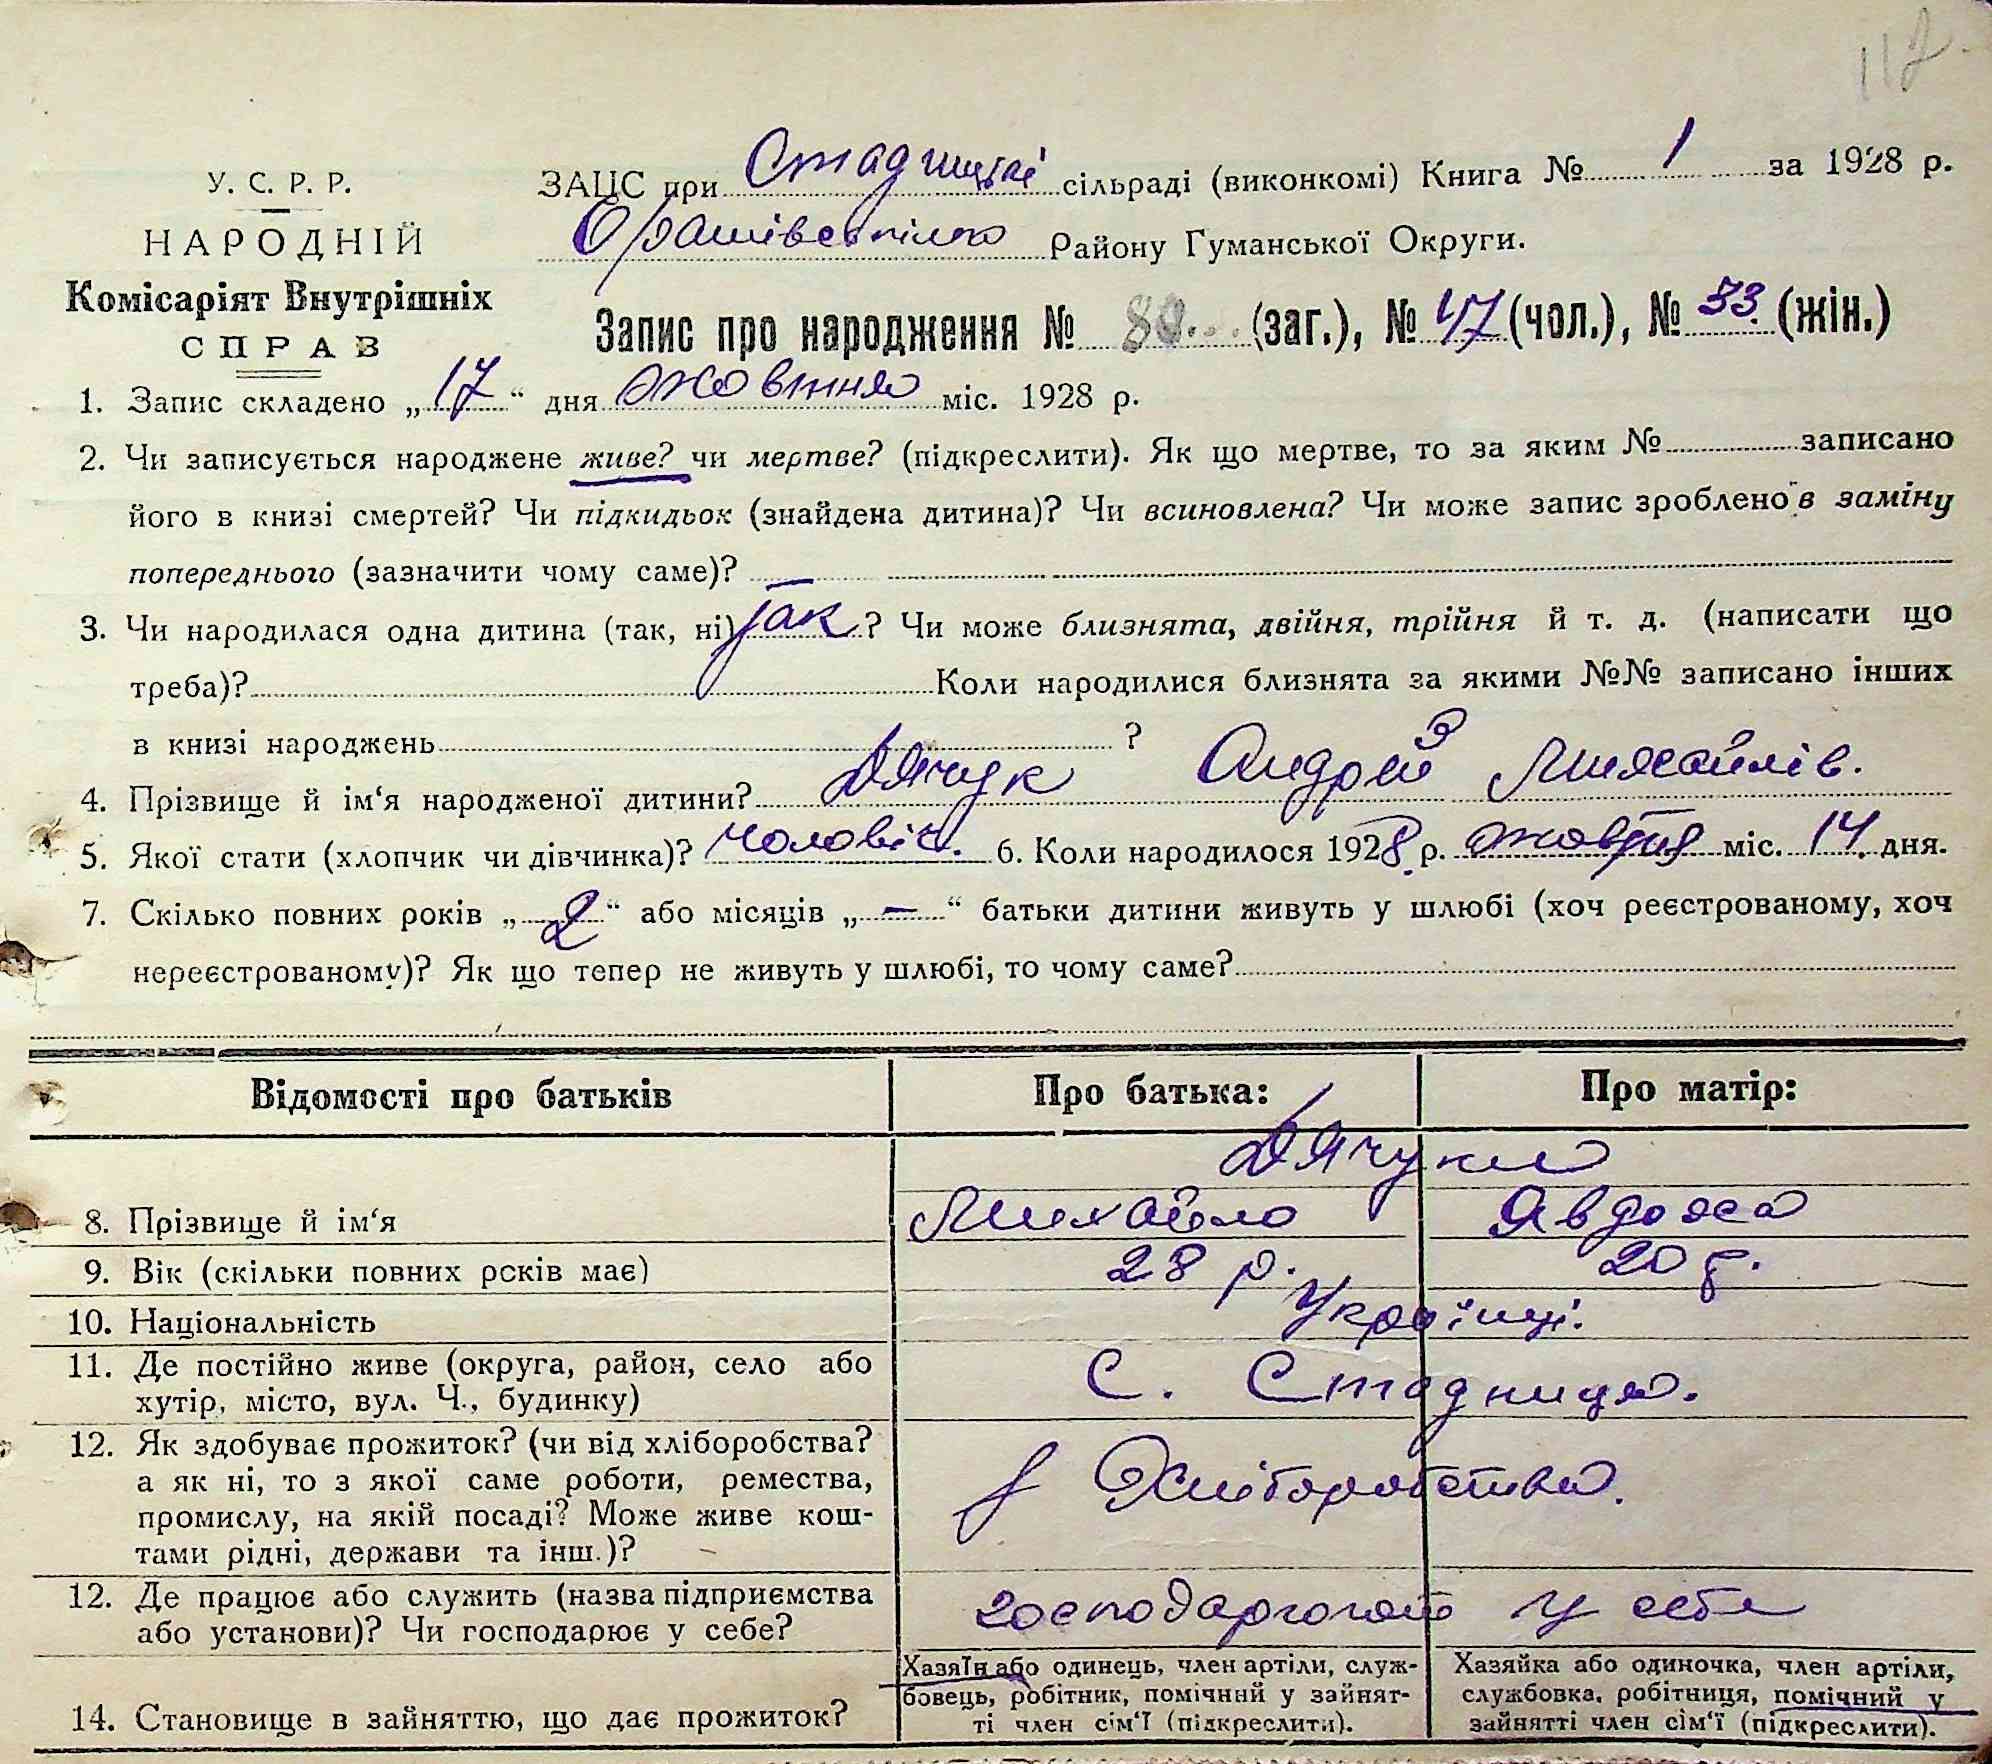 112
У. С. Р. Р.
НАРОДНІЙ
Комісаріят Внутрішніх
СПРАВ
ЗАЦС при Стадницькі сільраді (виконкомі) Книга № 1 за 1928 р.
Оратівського Району Гуманської Округи.
Запис про народження № 80 (заг.), № 47 (чол.), № 33 (жін.)
1. Запис складено „17“ дня жовтня міс. 1928 р.
2. Чи записується народжене живе? чи мертве? (підкреслити). Як що мертве, то за яким № записано
його в книзі смертей? Чи підкидьок (знайдена дитина)? Чи всиновлена? Чи може запис зроблено в заміну
попереднього (зазначити чому саме)? —
3. Чи народилася одна дитина (так, ні) так ? Чи може близнята, двійня, трійня й т. д. (написати що
треба)? Коли народилися близнята за якими №№ записано інших
в книзі народжень ?
4. Прізвище й ім‘я народженої дитини? Дячук Андрій Михайлів.
5. Якої стати (хлопчик чи дівчинка)? чоловіч. 6. Коли народилося 1928 р. жовтня міс. 14 дня.
7. Скілько повних років „2“ або місяців „—“ батьки дитини живуть у шлюбі (хоч реєстрованому, хоч
нереєстрованому)? Як що тепер не живуть у шлюбі, то чому саме?
Відомості про батьків Про батька: Про матір:
Дячуки
8. Прізвище й ім‘я Михайло Явдоха
9. Вік (скільки повних років має) 28 р. 20 р.
10. Національність Українці.
11. Де постійно живе (округа, район, село або
хутір, місто, вул. Ч., будинку) С. Стадниця.
12. Як здобуває прожиток? (чи від хліборобства?
а як ні, то з якої саме роботи, ремества,
промислу, на якій посаді? Може живе кош-
тами рідні, держави та інш.)? Хліборобства.
12. Де працює або служить (назва підприємства
або установи)? Чи господарює у себе? господарюють у себе
14. Становище в зайняттю, що дає прожиток?
Хазяїн або одинець, член артіли, служ-
бовець, робітник, помічний у зайнят-
ті член сім‘ї (підкреслити).
Хазяйка або одиночка, член артіли,
службовка, робітниця, помічний у
зайнятті член сім‘ї (підкреслити).